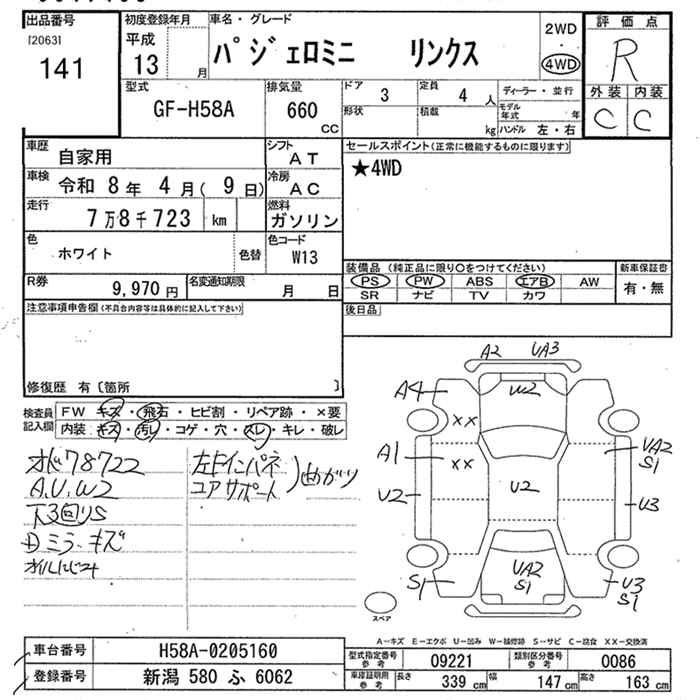 出品番号
[2063]
141
初度登録年月
平成
13 月
車名・グレード
パジェロミニ リンクス
2WD
・
4WD
評価点
R
外装 内装
C C
型式
GF-H58A
排気量
660
CC
ドア 3
定員 4 人
形状
積載 kg
ディーラー・並行
モデル年式 年
ハンドル 左・右
車歴
自家用
シフト
AT
セールスポイント(正常に機能するものに限ります)
★4WD
車検
令和 8年 4月( 9日)
冷房
AC
走行
7万8千723 km
燃料
ガソリン
色
ホワイト
色替
色コード
W13
R券
9,970円
名変通知期限
月 日
装備品 (純正品に限り○をつけてください)
新車保証書
PS PW ABS エアB AW
SR ナビ TV カワ
有・無
後日品
注意事項申告欄(不具合内容等は具体的に記入して下さい)
修復歴 有〔箇所 〕
検査員
記入欄
FW キズ・飛石・ヒビ割・リペア跡・×要
内装:キズ・汚れ・コゲ・穴・スレ・キレ・破レ
オド78722
A.U.W2
下3回りS
ミラーキズ
オイルにじみ
左ドインパネ
コアサポート
)曲がり
A2 UA3
A4
W2
××
A1
××
UA2
S1
U2
U2
U3
UA2
S1
S1
U3
S1
スペア
A-キズ E-エクボ U-凹み W-補修跡 S-サビ C-腐食 XX-交換済
車台番号 H58A-0205160
登録番号 新潟 580 ふ 6062
型式指定番号
参考
09221
類別区分番号
参考
0086
車庫証明用
参考
長さ 339 cm
幅 147 cm
高さ 163 cm